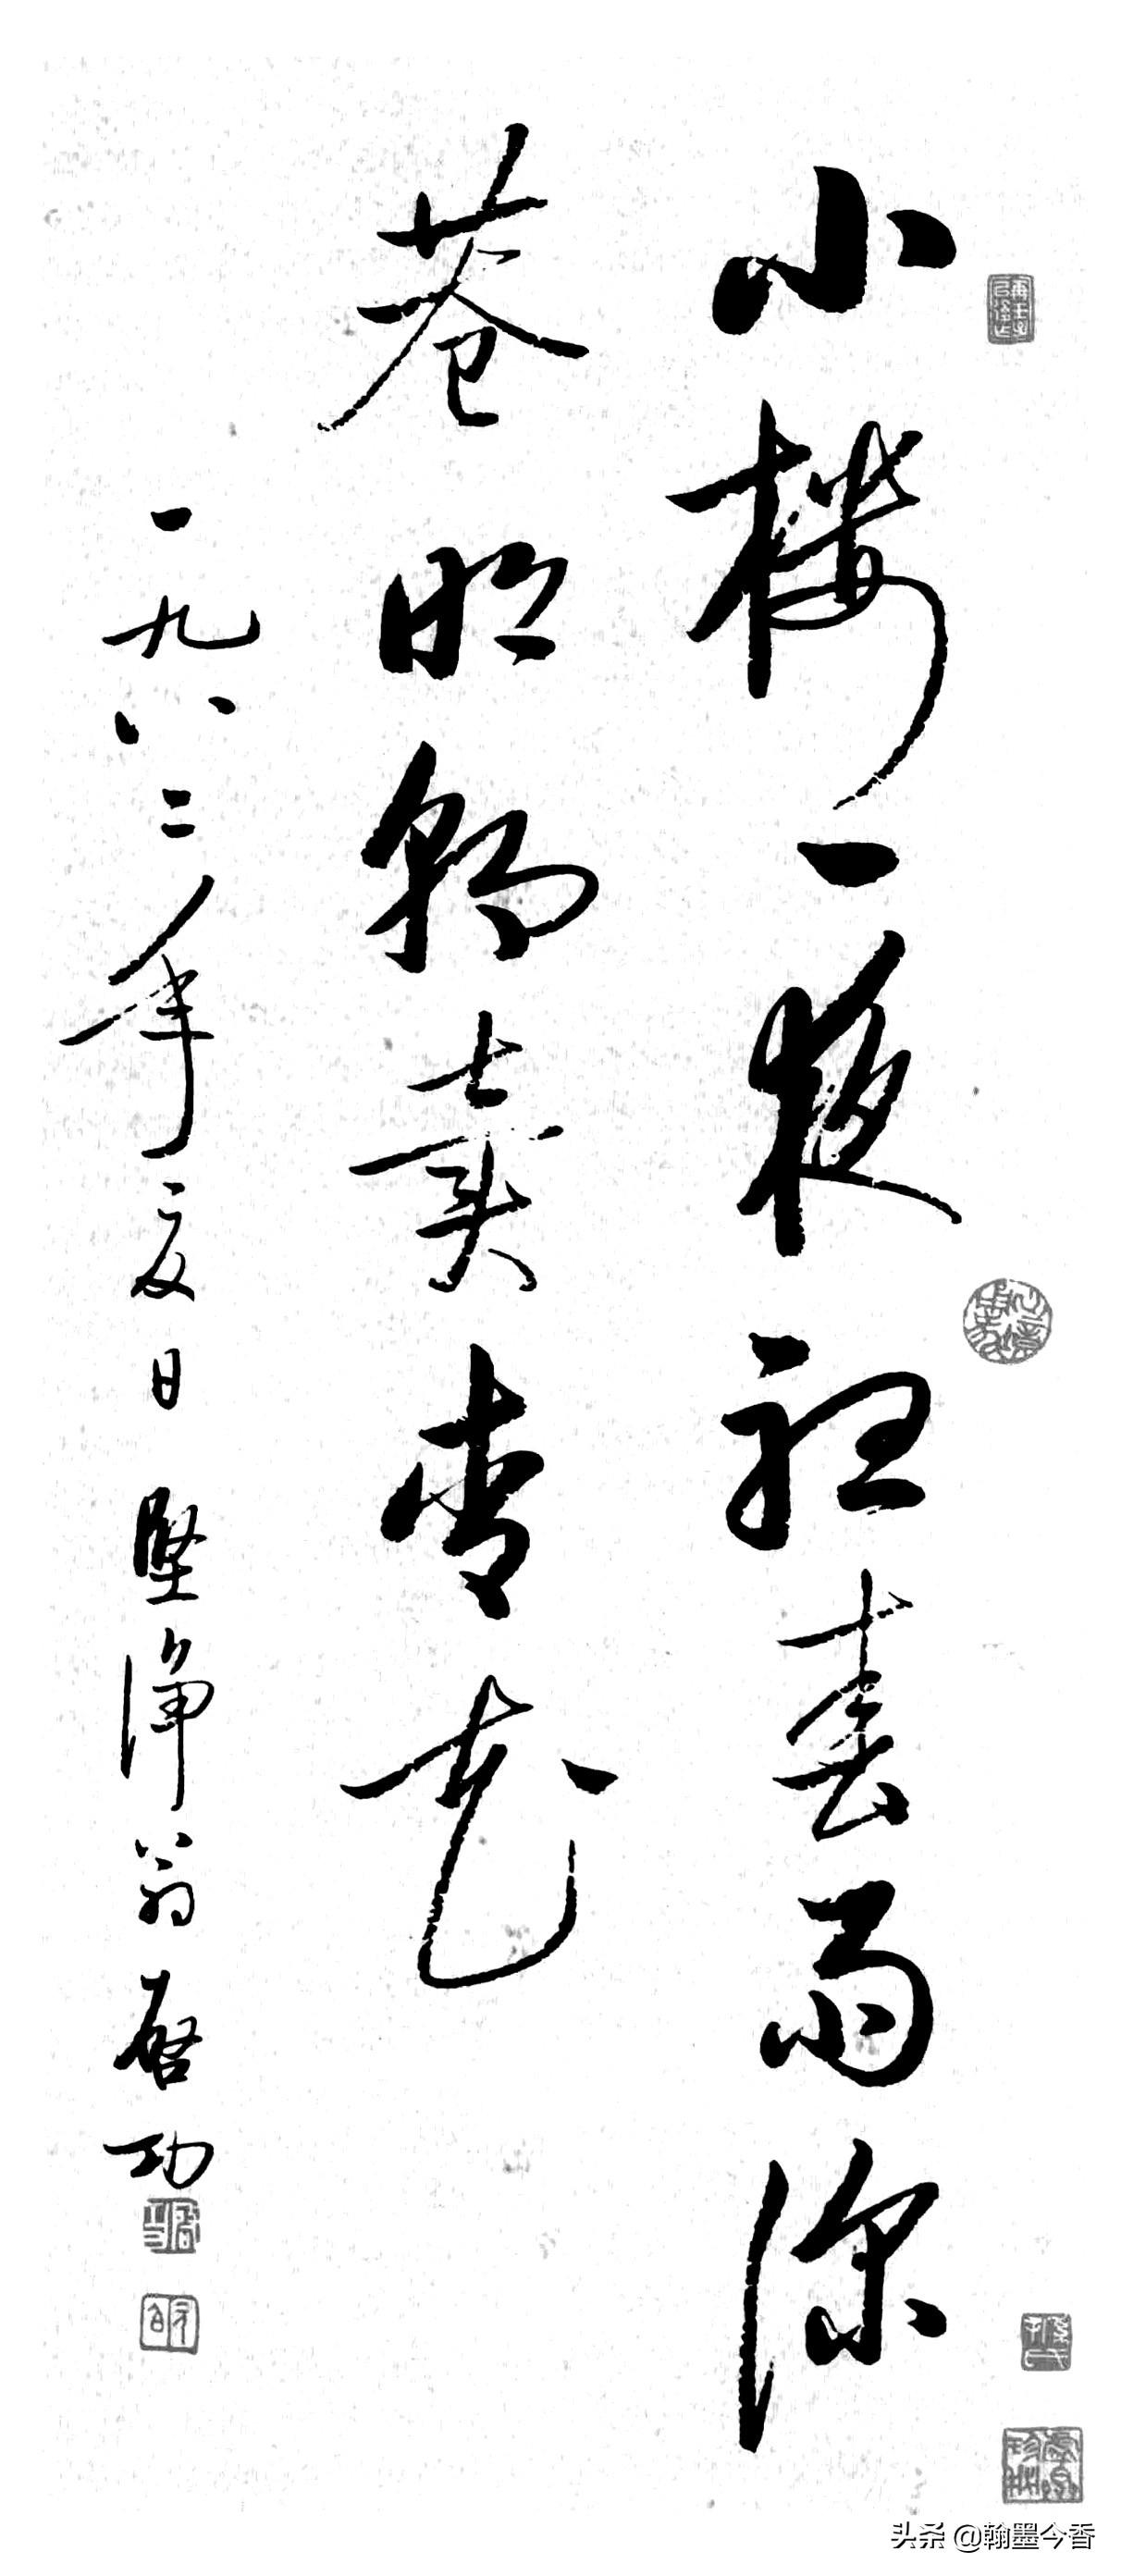 小樓一夜聽春雨深
巷明朝賣杏花
一九八二年夏日 堅淨翁啓功
头条 @翰墨今香